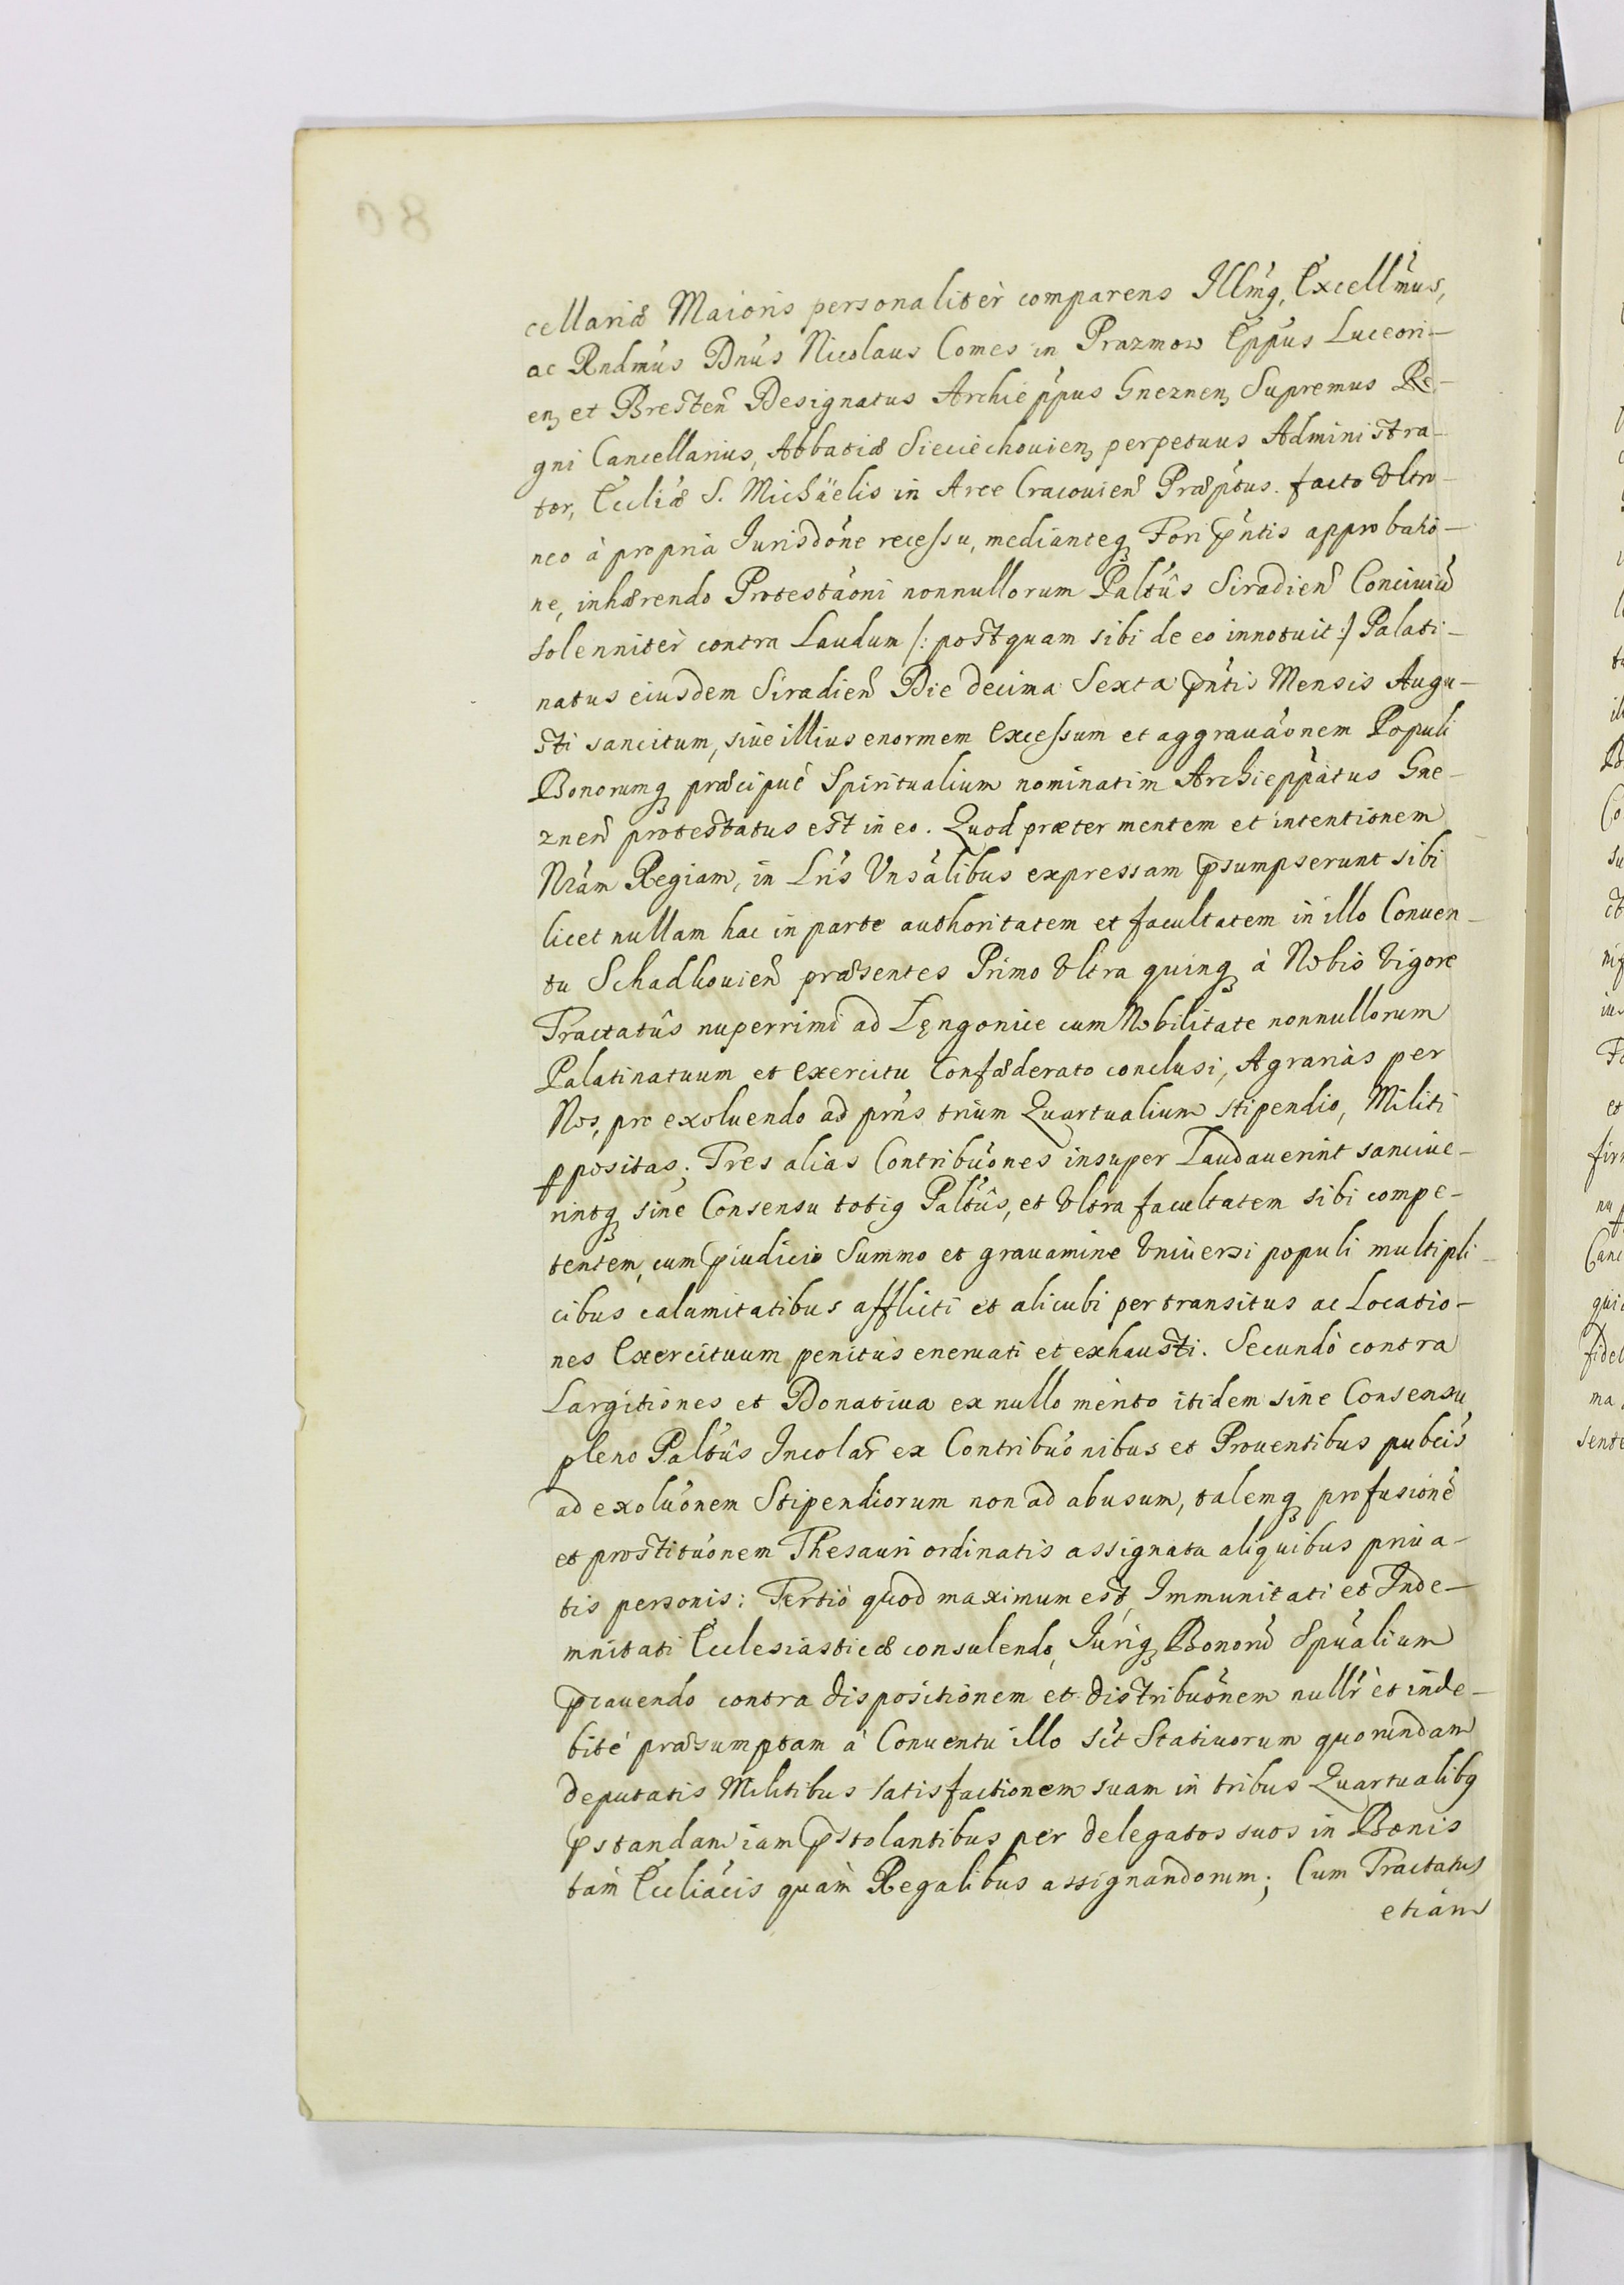 cellariæ Maioris personalitèr comparens Illm̃q, Excell̃mus,
ac Rndm̃us Dñus Nicolaus Comes in Prazmow Ep̃pus Luceori-
en, et Bresten̄ Designatus Archiep̃pus Gneznen, Supremus Re-
gni Cancellarius, Abbatiæ Sieciechouien, perpetuus Administra-
tor, Eccliæ S. Michäelis in Arce Cracouien̄ Præp̃tus. facto Vltro-
neo à propria Jurisdõne recessu, medianteq, Fori p̃ntis approbatio-
ne, inhærendo Protestaõni nonnullorum Paltûs Siradien̄ Conciuiū
solennitèr contra Laudum /: postquam sibi de eo innotuit :/ Palati-
natus eiusdem Siradien̄ Die decima Sexta p̃ntis Mensis Augu-
sti sancitum, siue illius enormem excessum et aggrauaõnem Populi
Bonorumq, præcipuè Spiritualium nominatim Archiep̃patus Gne-
znen̄ protestatus est in eo. Quod præter mentem et intentionem
Nr̃am Regiam, in Lr̃is Vnsãlibus expressam p̃sumpserunt sibi
licet nullam hac in parte authoritatem et facultatem in illo Conuen-
tu Schadkouien̄ præsentes Primo Vltra quinq, à Nobis Vigore
Tractatûs nuperrimi ad Lęngonice cum Nobilitate nonnullorum
Palatinatuum et exercitu Confæderato conclusi, Agrariàs per
Nos, pro exoluendo ad pr̃ns trium Quartualium stipendio, Militi
p̱positas; Tres alias Contribuõnes insuper Laudauerint sanciue-
rintq, sine Consensu totiq Paltûs, et Vltra facultatem sibi compe-
tentem, cum p̃iudicio Summo et grauamine Vniuersi populi multipli-
cibus calamitatibus afflicti et alicubi per transitus ac Locatio-
nes Exercituum penitùs eneruati et exhausti. Secundò contra
Largitiones et Donatiua ex nullo merito itidem sine Consensu
pleno Paltûs Incolar̄ ex Contribuõnibus et Prouentibus pubcis
ad exoluõnem Stipendiorum non ad abusum, talemq, profusionē
et prostituõnem Thesauri ordinatis assignata aliquibus priua-
tis personis: Tertiò quod maximum est, Immunitati et Inde-
mnitati Ecclesiasticæ consulendo, Juriq, Bonorū Spũalium
p̃cauendo contra dispositionem et distribuõnem nullr̃ èt inde-
bitè præsumptam à Conuentu illo sĩt Statiuorum quorundam
deputatis Militibus satisfactionem suam in tribus Quartualibq
p̃standam iam p̃stolantibus per delegatos suos in Bonis
tàm Eccliãcis quàm Regalibus assignandorum; Cum Tractatus
etiàm